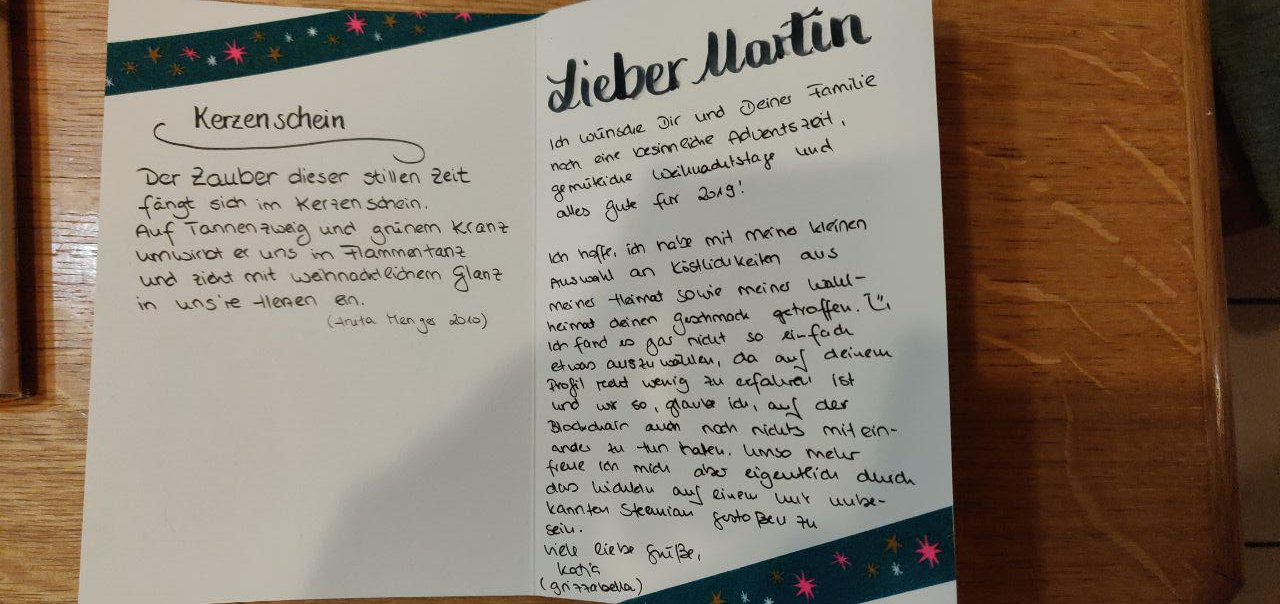 Kerzenschein
Der Zauber dieser stillen Zeit
fängt sich im Kerzenschein.
Auf Tannenzweig und grünem Kranz
umwirbt er uns im Flammentanz
und zieht mit weihnachtlichem Glanz
in uns're Herzen ein.
(Anita Menger 2010)
Lieber Martin
Ich wünsche Dir und Deiner Familie
noch eine besinnliche Adventszeit,
gemütliche Weihnachtstage und
alles gute für 2019!
Ich hoffe, ich habe mit meiner kleinen
Auswahl an Köstlichkeiten aus
meiner Heimat sowie meiner Wahl-
heimat deinen Geschmack getroffen.
Ich fand es gar nicht so einfach
etwas auszuwählen, da auf deinem
Profil recht wenig zu erfahren ist
und wir so, glaube ich, auf der
Blockchain auch noch nichts mitein-
ander zu tun haben. Umso mehr
freue ich mich aber eigentlich durch
das Wichteln auf einen mir unbe-
kannten Steemian gestoßen zu
sein.
Viele liebe Grüße,
Katja
(grizzabella)